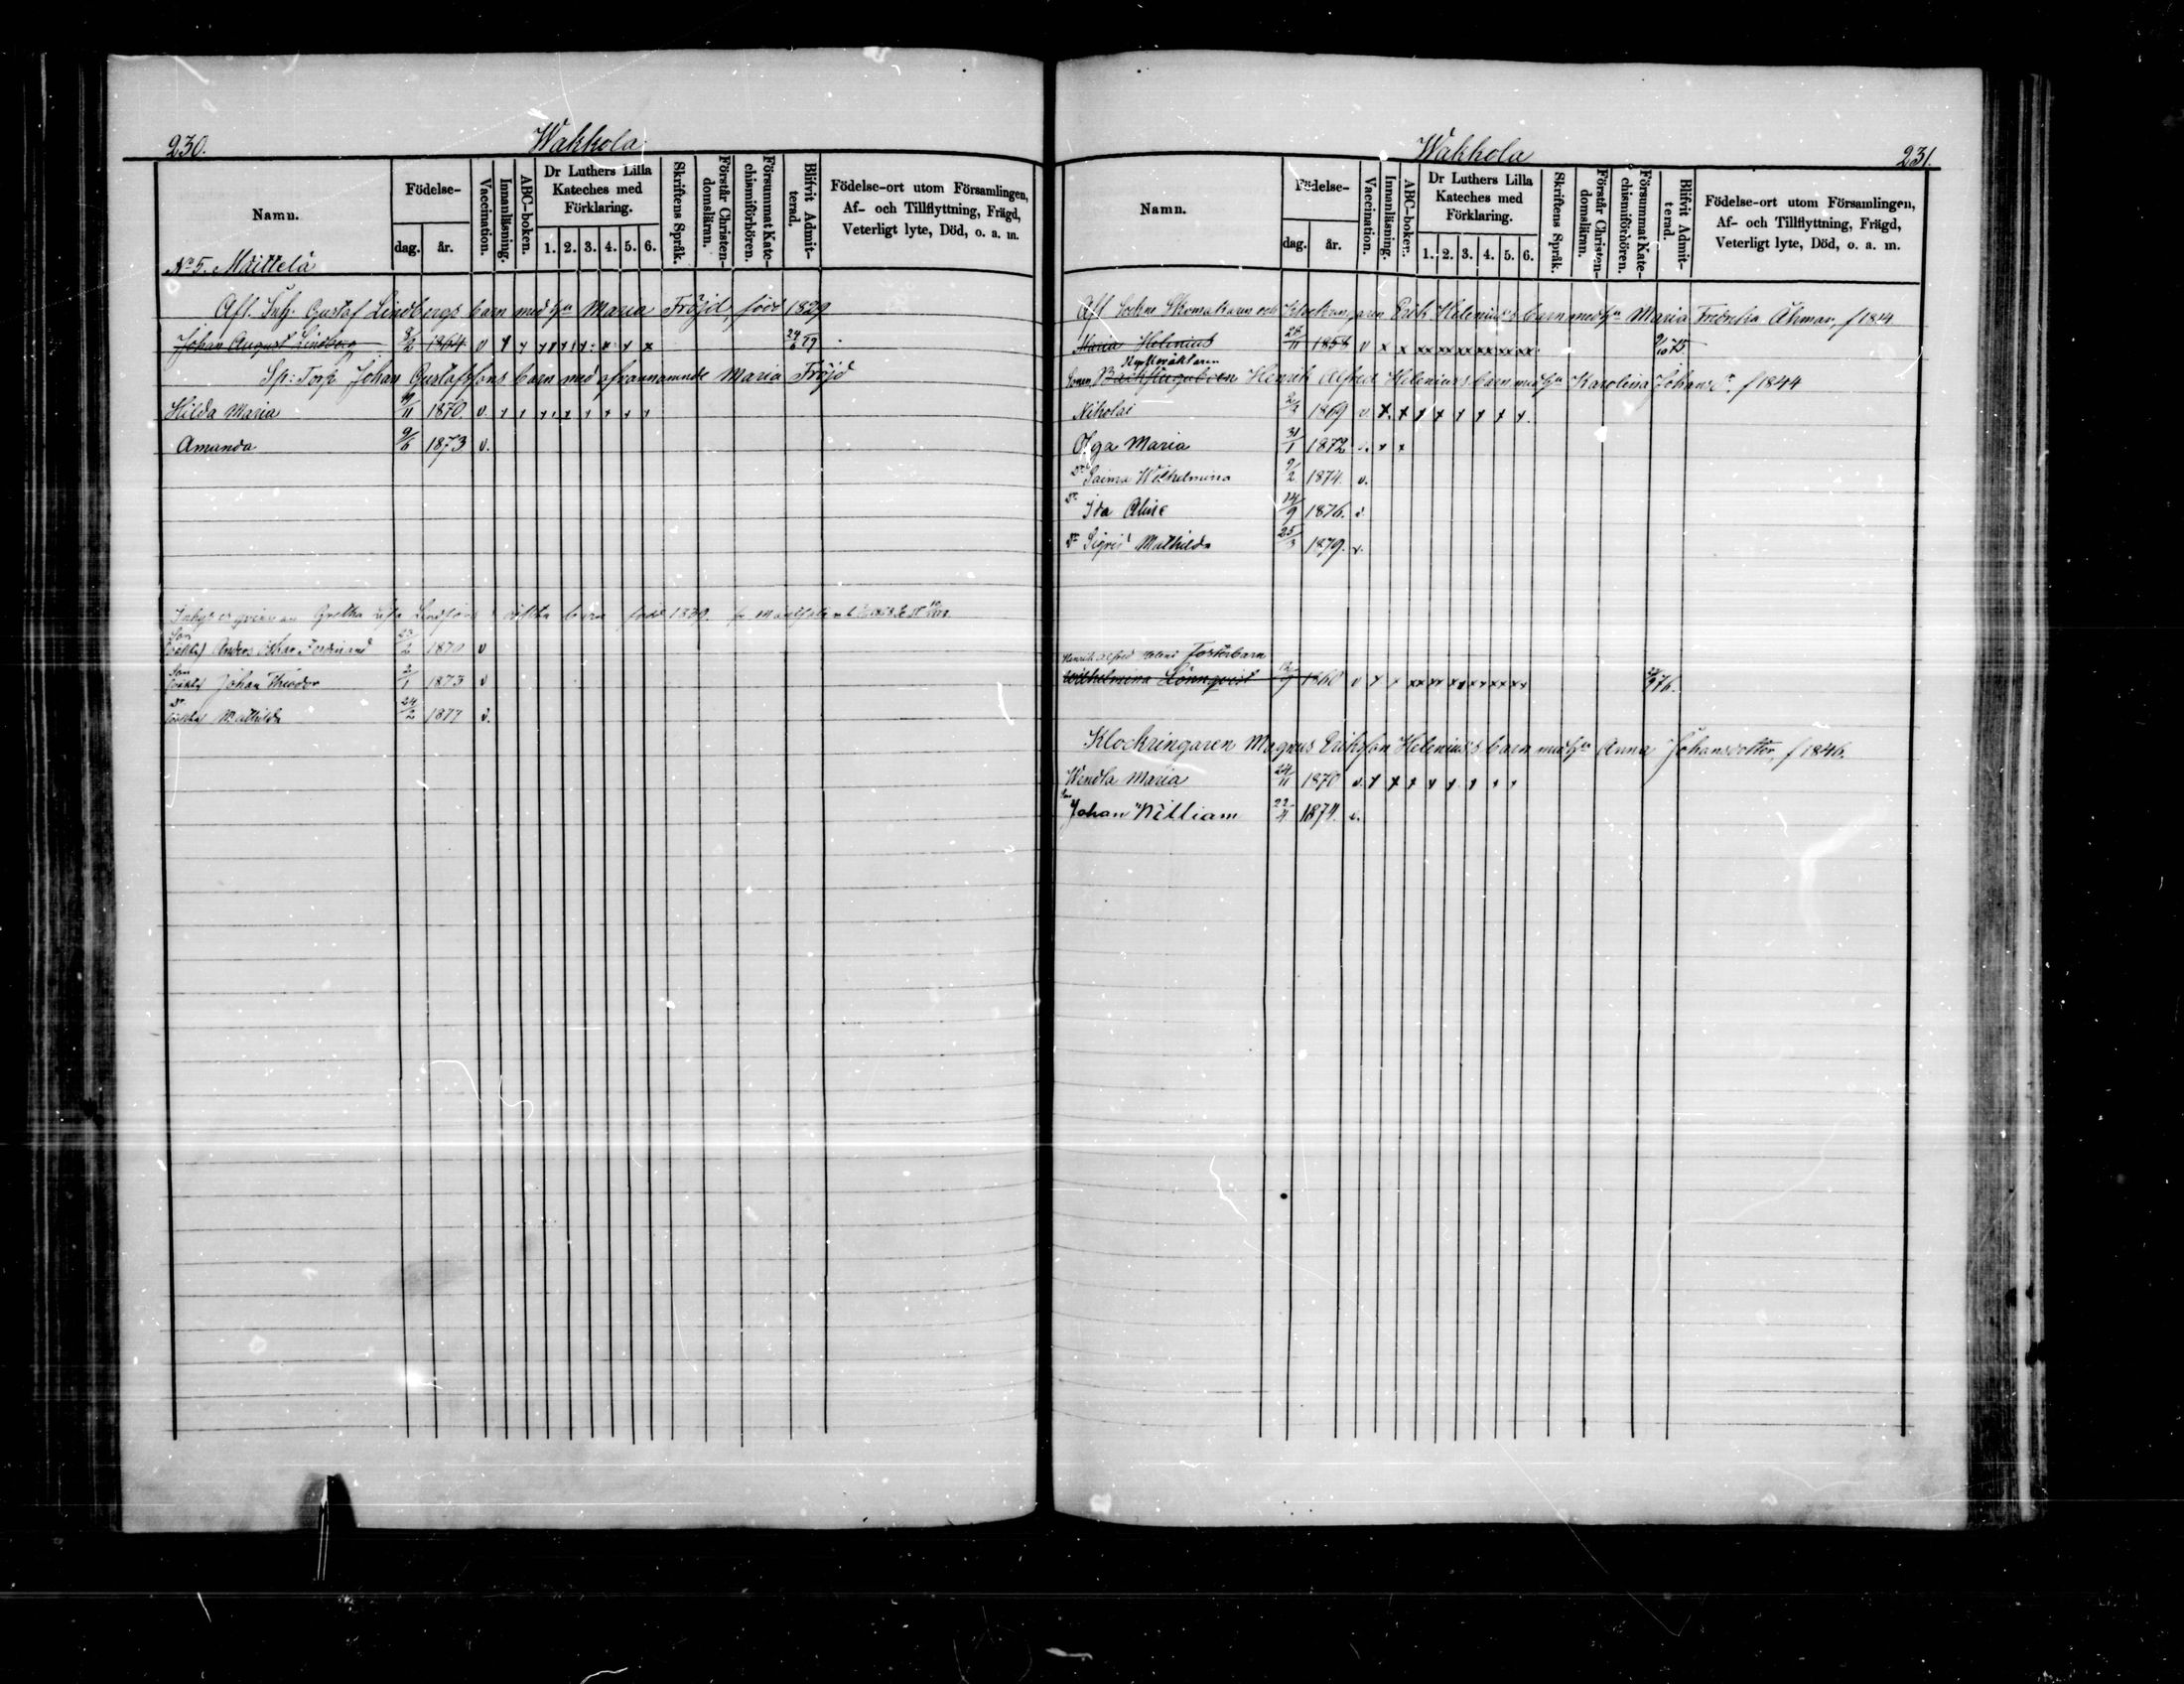 230.
Wakkola
Namn.
Födelse-
dag.
år.
Vaccination.
Innanläsning.
ABC-boken.
Dr Luthers Lilla
Kateches med
Förklaring.
1. 2. 3. 4. 5. 6.
Skriftens Språk.
Förstår Christen-
domsläran.
Försummat Kate-
chismiförhören.
Blifvit Admit-
terad.
Födelse-ort utom Församlingen,
Af- och Tillflyttning, Frägd,
Veterligt lyte, Död, o. a. m.
No 5. Mäittelä
Afl. Inh. Gustaf Lindbergs barn med h:u Maria Fröjd, född 1829
Johan August Lindberg 8/2 1864 v x x x x x x x x x x
Sp: Torp. Johan Gustafssons barn med ofvannämnde Maria Fröjd
Hilda Maria 1870 v. x x x x x x x x x
Amanda 9/6 1873 v.
Gretha född 1839.
Son Anders Oskar Ferdinand 23/2 1870 v
Son Johan Theodor 2/1 1873 v
Dr. Mathilda 24/2 1877 v.
Wakkola
231.
Namn.
Födelse-
dag.
år.
Vaccination.
Innanläsning.
ABC-boken.
Dr Luthers Lilla
Kateches med
Förklaring.
1. 2. 3. 4. 5. 6.
Skriftens Språk.
Förstår Christen-
domsläran.
Försummat Kate-
chismiförhören.
Blifvit Admit-
terad.
Födelse-ort utom Församlingen,
Af- och Tillflyttning, Frägd,
Veterligt lyte, Död, o. a. m.
Afl Sockne Skomakaren och Klockringaren Erik Helenius's barn med h:u Maria Fredrika Åhman, f 1814
Maria Helenius 28/11 1858 v x x xx xx xx xx xx xx 9/10 75.
Sonen Henrik Alfred Helenius's barn med h:u Karolina Johansdr. f 1844
Nikolai 1869 v x x x x x x x x.
Olga Maria 31/1 1872 v. x x
Dr. Saima Wilhelmina 9/2 1874. v.
Dr. Ida Aline 14/9 1876. v.
Dr. Sigrid Mathilda 25/3 1879. v.
Henrik Alfred Fosterbarn
Wilhelmina Lönnqvist 1860 v x x xx xx xx xx xx xx
Klockringaren Magnus Eriksson Helenius's barn med h:u Anna Johansdotter, f 1846.
Wendla Maria 24/11 1870 v. x x x x x x x x
Son Johan William 22/4 1874. v.